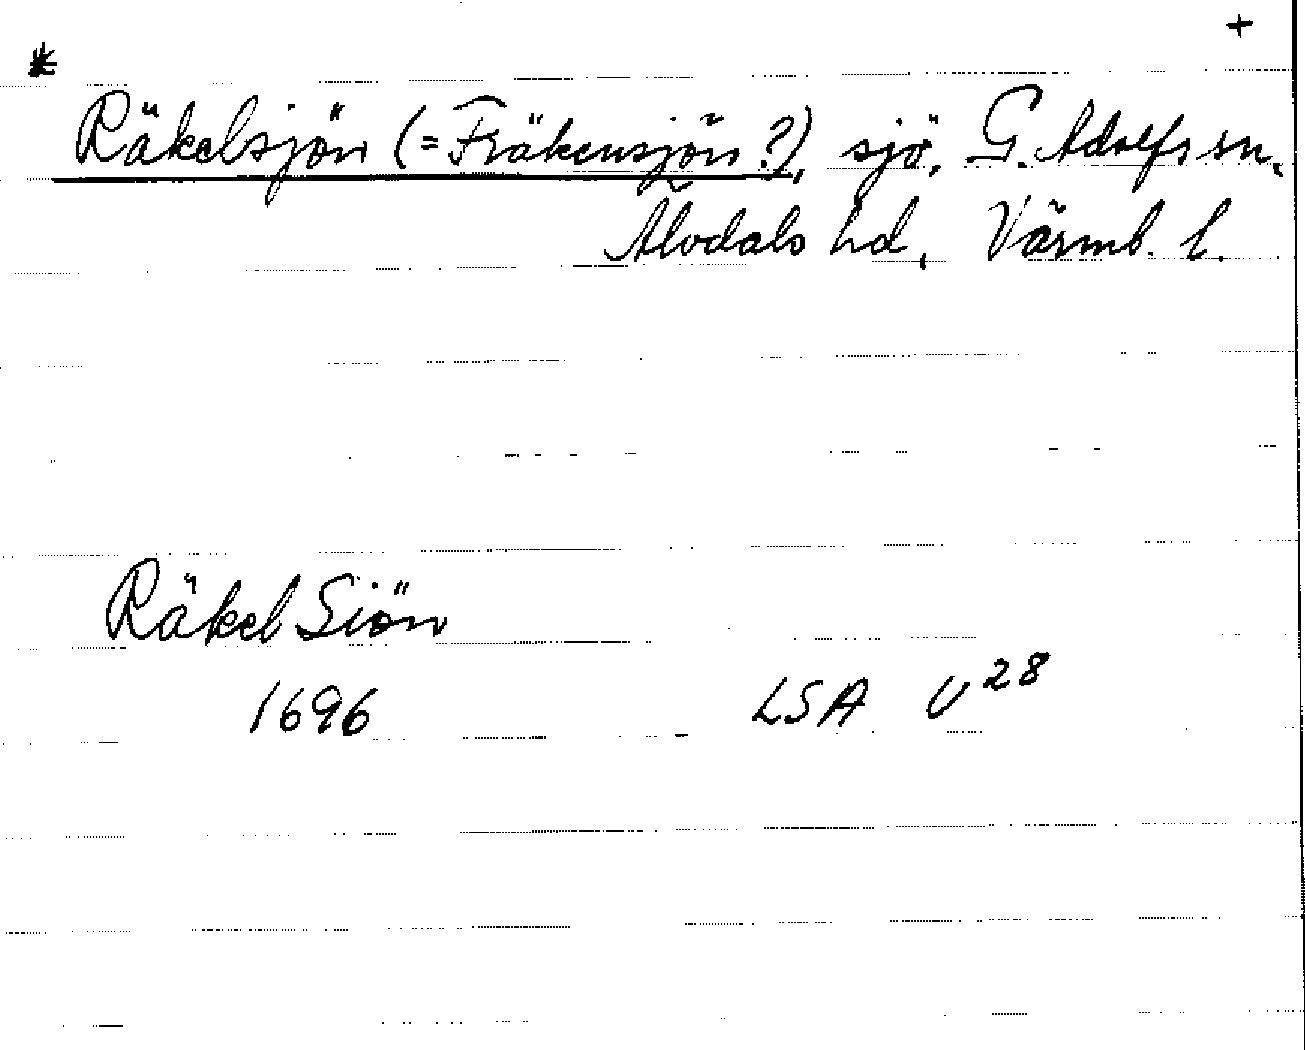 * +
Räkelsjön (= Fräkensjön?), sjö, G. Adolfs sn,
Älvdals hd, Värml. l.
Räkel Siön
1696 LSA U 28